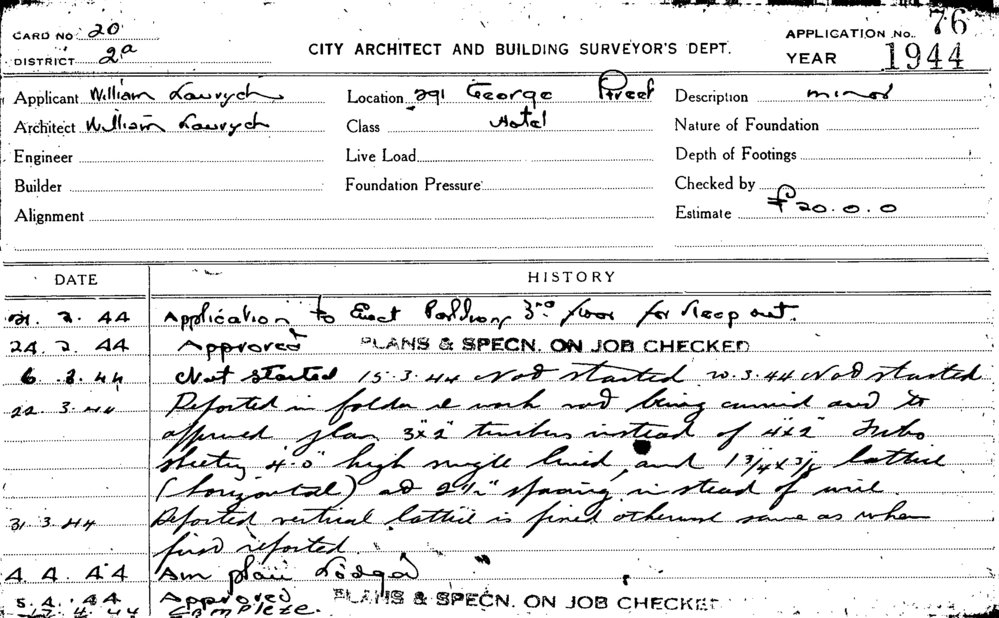 CARD NO 20
DISTRICT 2a
CITY ARCHITECT AND BUILDING SURVEYOR'S DEPT.
APPLICATION No. 76
YEAR 1944
Applicant William
Location 291 George Street
Description minor
Architect William
Class Hotel
Nature of Foundation
Engineer
Live Load
Depth of Footings
Builder
Foundation Pressure
Checked by
Alignment
Estimate £20.0.0
DATE HISTORY
21. 2. 44 Application to Erect 3rd floor for sleep out.
24. 2. 44 Approved PLANS & SPECN. ON JOB CHECKED
6. 3. 44 Not started 15.3.44 Not started 20.3.44 Not started
22. 3. 44 Reported in folder work not being carried out to
approved plan 3"x2" timbers instead of 4"x2"
sheeting 4'.0" high single lined, and lattice
(horizontal) at 2½" spacing instead of wire
31. 3. 44 Reported vertical lattice is fixed otherwise same as when
first reported.
4. 4. 44 Am plan Lodged
5. 4. 44 Approved PLANS & SPECN. ON JOB CHECKED
4. 44 Complete.